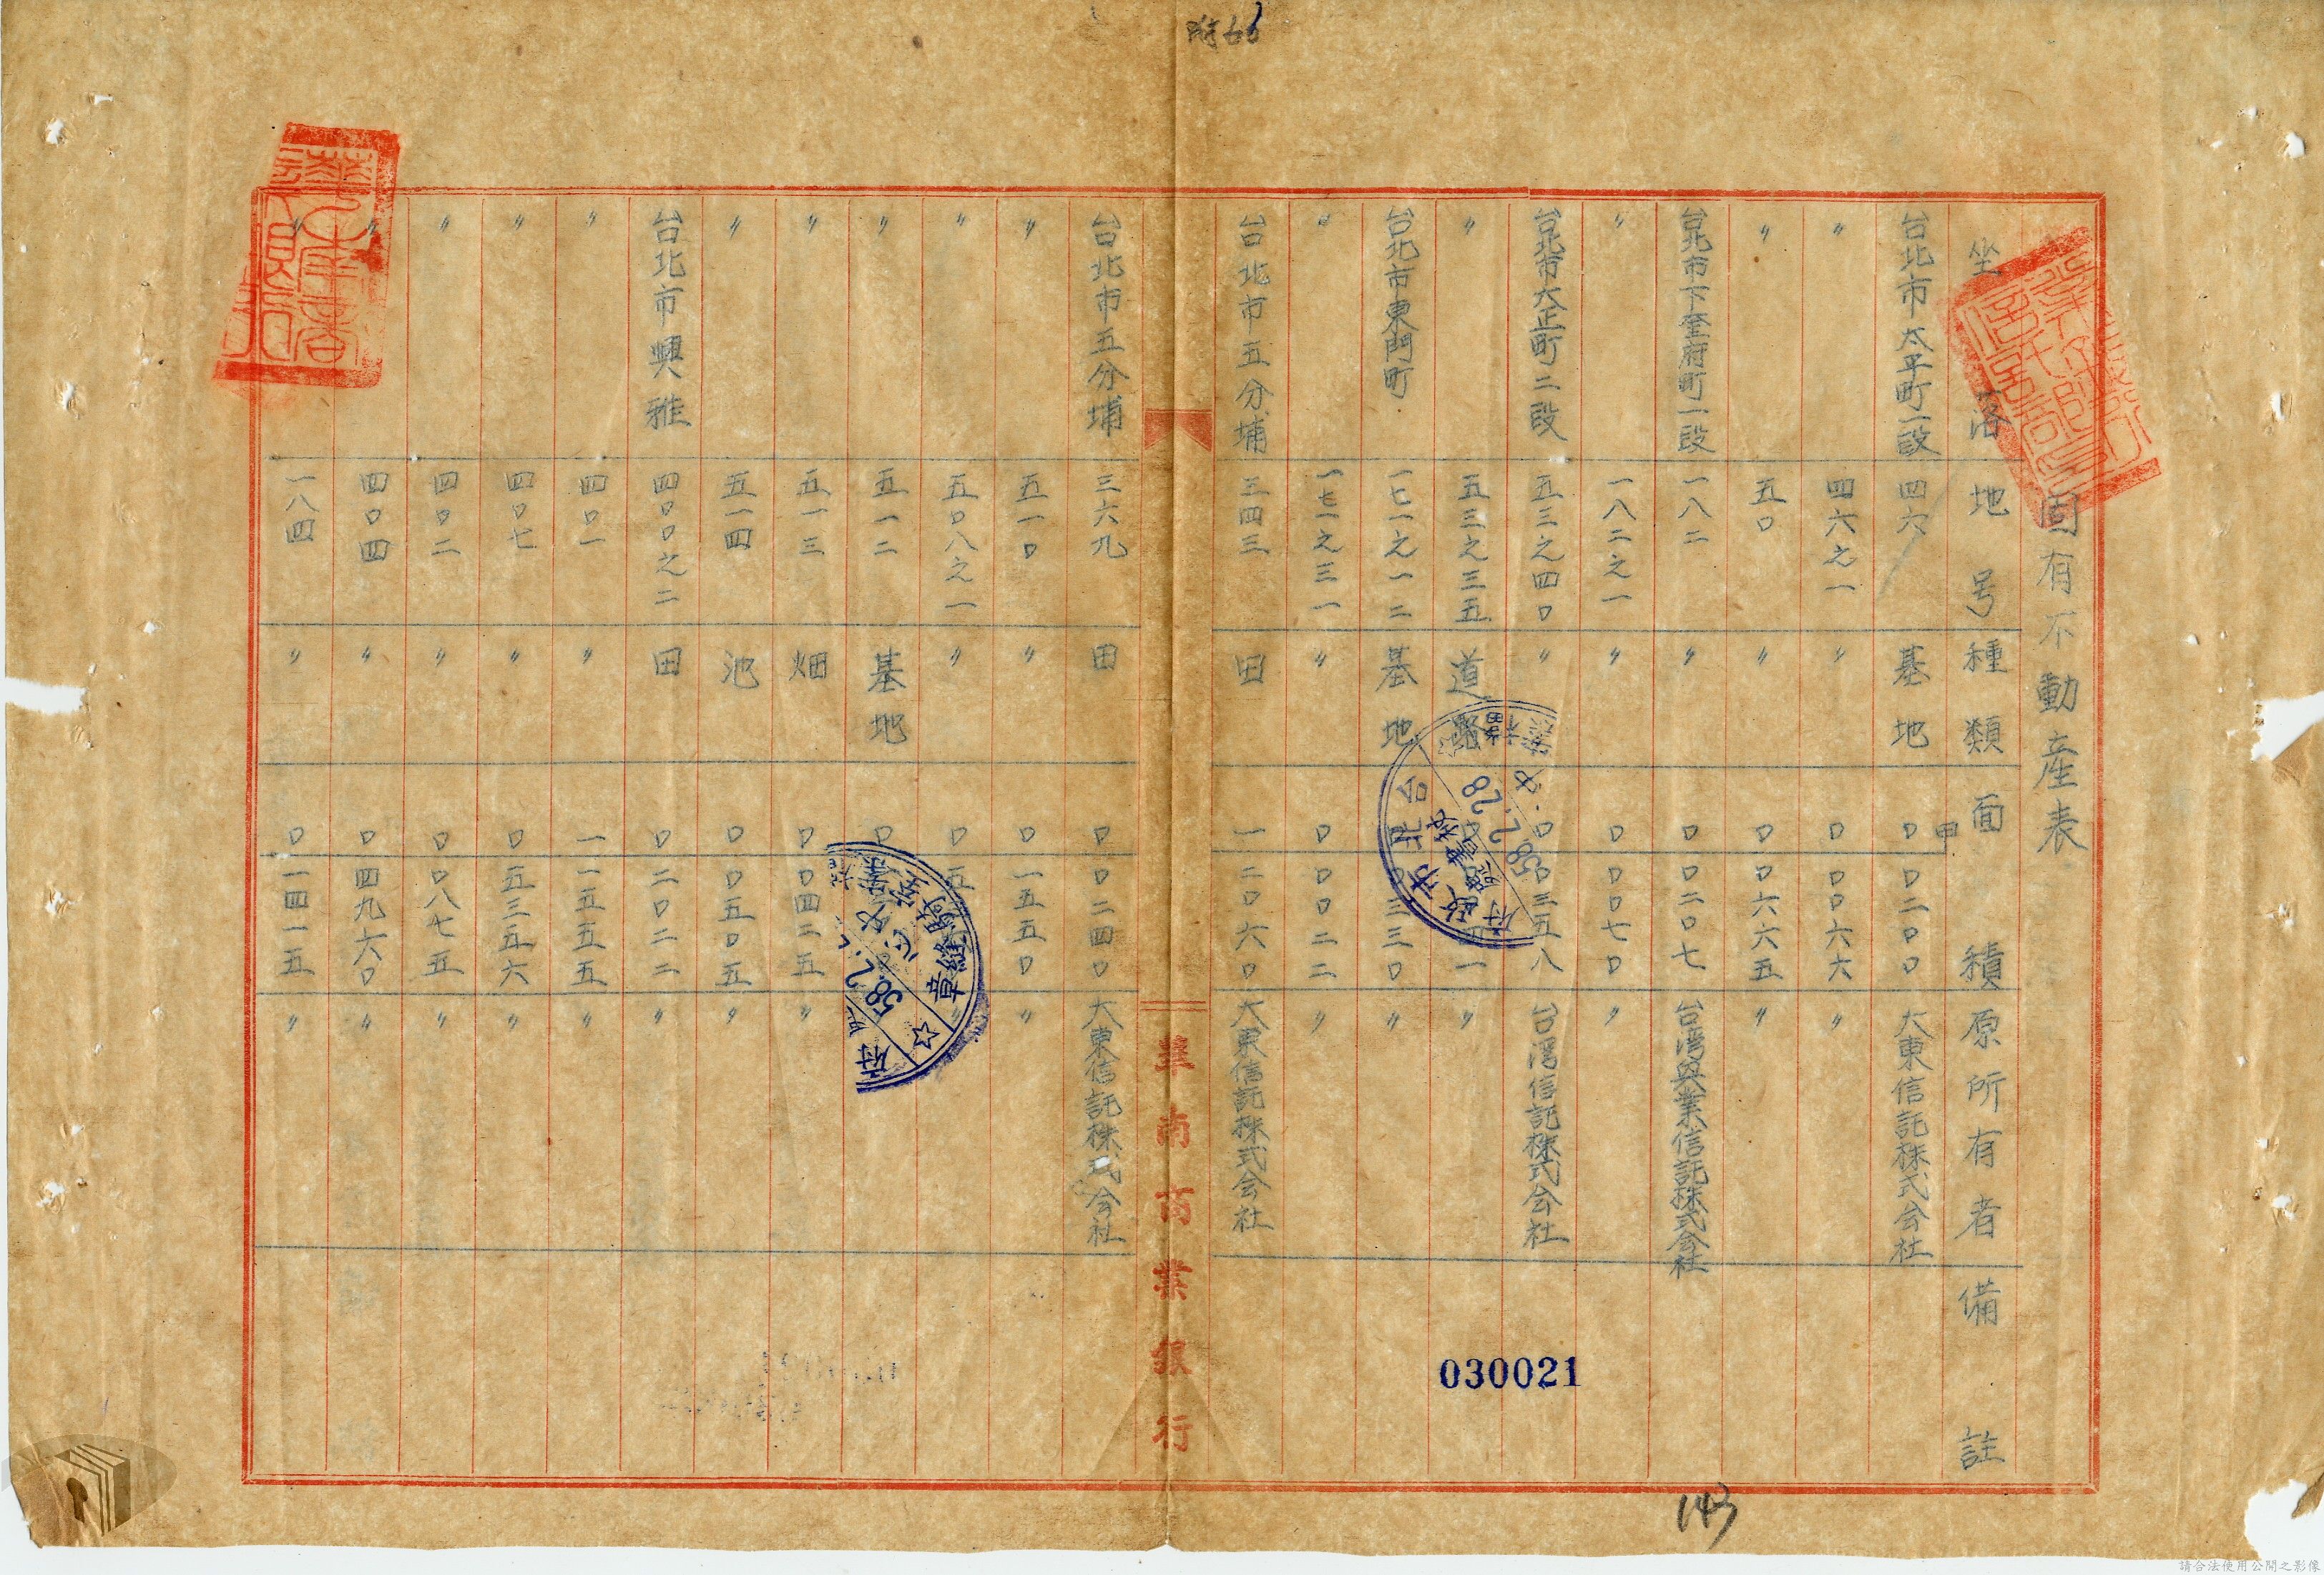 附66
固有不動産表
坐落 地号 種類 面積 原所有者 備註
甲
台北市太平町一段 四六 基地 〇 〇二〇〇 大東信託株式会社
〃 四六之一 〃 〇 〇〇六六 〃
〃 五〇 〃 〇 〇六六五 〃
台北市下奎府町一段 一八二 〃 〇 〇二〇七 台湾興業信託株式会社
〃 一八二之一 〃 〇 〇〇七〇 〃
台北市大正町二段 五三之四〇 〃 〇 〇三五八 台湾信託株式会社
〃 五三之三五 道路 〃
台北市東門町 一七一之一二 基地 〇三三〇 〃
〃 一七一之三一 〃 〇 〇〇二二 〃
台北市五分埔 三四三 田 一 二〇六〇 大東信託株式会社
華南商業銀行
台北市五分埔 三六九 田 〇 〇二四〇 大東信託株式会社
〃 五一〇 〃 〇 一五五〇 〃
〃 五〇八之一 〃 〇 五 〃
〃 五一二 基地 〇
〃 五一三 畑 〇 〇四二五 〃
〃 五一四 池 〇 〇五〇五 〃
台北市興雅 四〇〇之二 田 〇 二〇二二 〃
〃 四〇一 〃 一 一五五五 〃
〃 四〇七 〃 〇 五三五六 〃
〃 四〇二 〃 〇 〇八七五 〃
〃 四〇四 〃 〇 四九六〇 〃
〃 一八四 〃 〇 一四一五 〃
台北市政府
58.2.28
58.2.
章縫騎
030021
143
請合法使用公開之影像